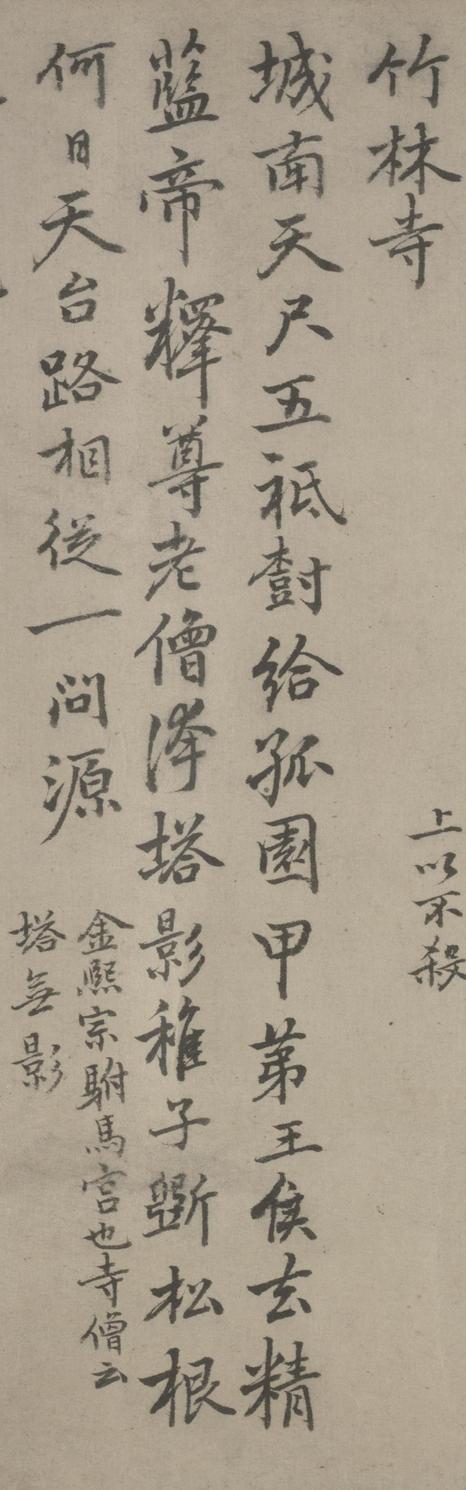 上以不殺
竹林寺
城南天尺五祗樹給孤園甲第王侯去精
藍帝釋尊老僧諱塔影稚子斲松根
何日天台路相從一問源
金熙宗駙馬宮也寺僧云
塔無影